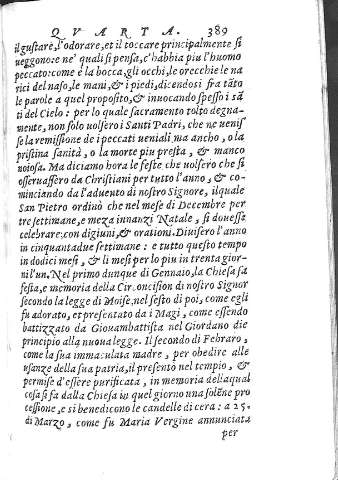 QVARTA. 389
il gustare, l'odorare, et il toccare principalmente si
ueggono: e ne' quali si pensa, c'habbia piu l'huomo
peccato: come è la bocca, gli occhi, le orecchie le na
rici del naso, le mani, & i piedi, dicendosi fra tãto
le parole a quel proposito, & inuocando spesso i sã
ti del Cielo: per lo quale sacramento tolto degna-
mente, non solo uolsero i Santi Padri, che ne uenis
se la remissione de i peccati ueniali ma ancho, o la
pristina sanità, o la morte piu presta, & manco
noiosa. Ma diciamo hora le feste che uolsero che si
osseruassero da Christiani per tutto l'anno, & co-
minciando da l'aduento di nostro Signore, il quale
San Pietro ordinò che nel mese di Decembre per
tre settimane, e meza innanzi Natale, si douesse
celebrare con digiuni, & orationi. Diuisero l'anno
in cinquantadue settimane: e tutto questo tempo
in dodici mesi, & li mesi per lo piu in trenta gior-
ni l'un. Nel primo dunque di Gennaio, la Chiesa fa
festa, e memoria della Circoncision di nostro Signor
secondo la legge di Moise, nel sesto di poi, come egli
fu adorato, et presentato da i Magi, come essendo
battizzato da Giouambattista nel Giordano die
principio alla nuoua legge. Il secondo di Febraro,
come la sua immaculata madre, per obedire alle
usanze della sua patria, il presentò nel tempio, &
permise d'essere purificata, in memoria della qual
cosa si fa dalla Chiesa in quel giorno una solẽne pro
cessione, e si benedicono le candelle di cera: a 25.
di Marzo, come fu Maria Vergine annunciata
per